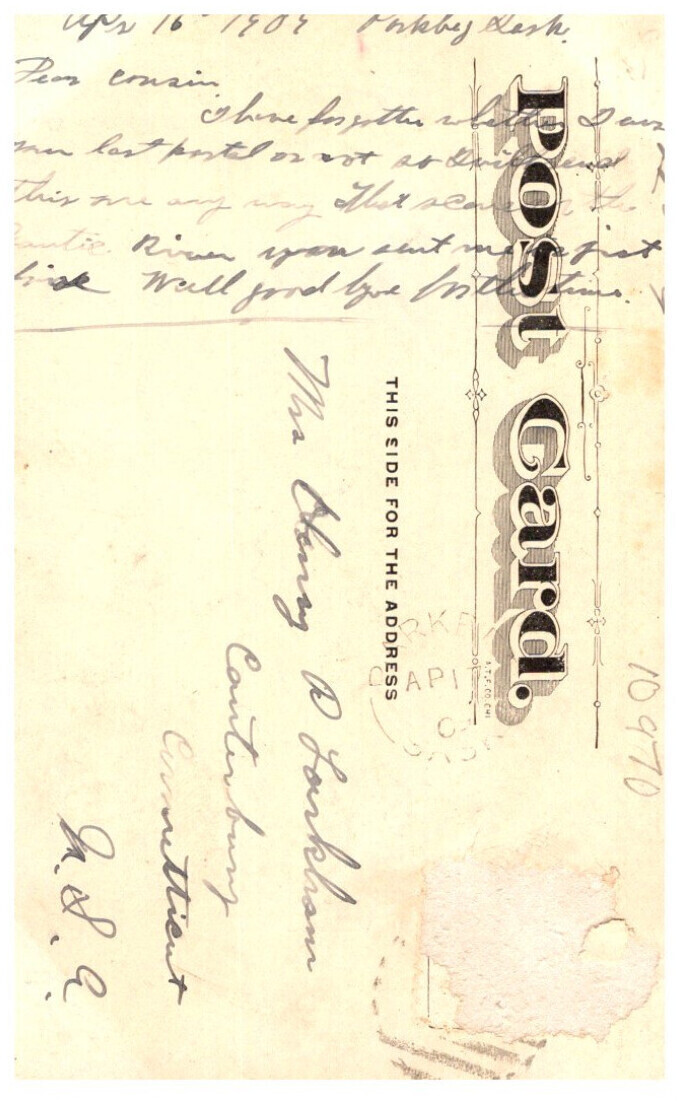 Apr 16 1909 Parkbeg Sask.
Dear cousin
I have forgotten whether I ans
your last postal or not so I will send
this one any way That scene on the
Niantic River you sent me is just
fine Well good bye for this time.
Post Card.
THIS SIDE FOR THE ADDRESS
Mrs Henry D Larkham
Canterbury
Connetticut
U. S. A.
AP 1
SASK
10970